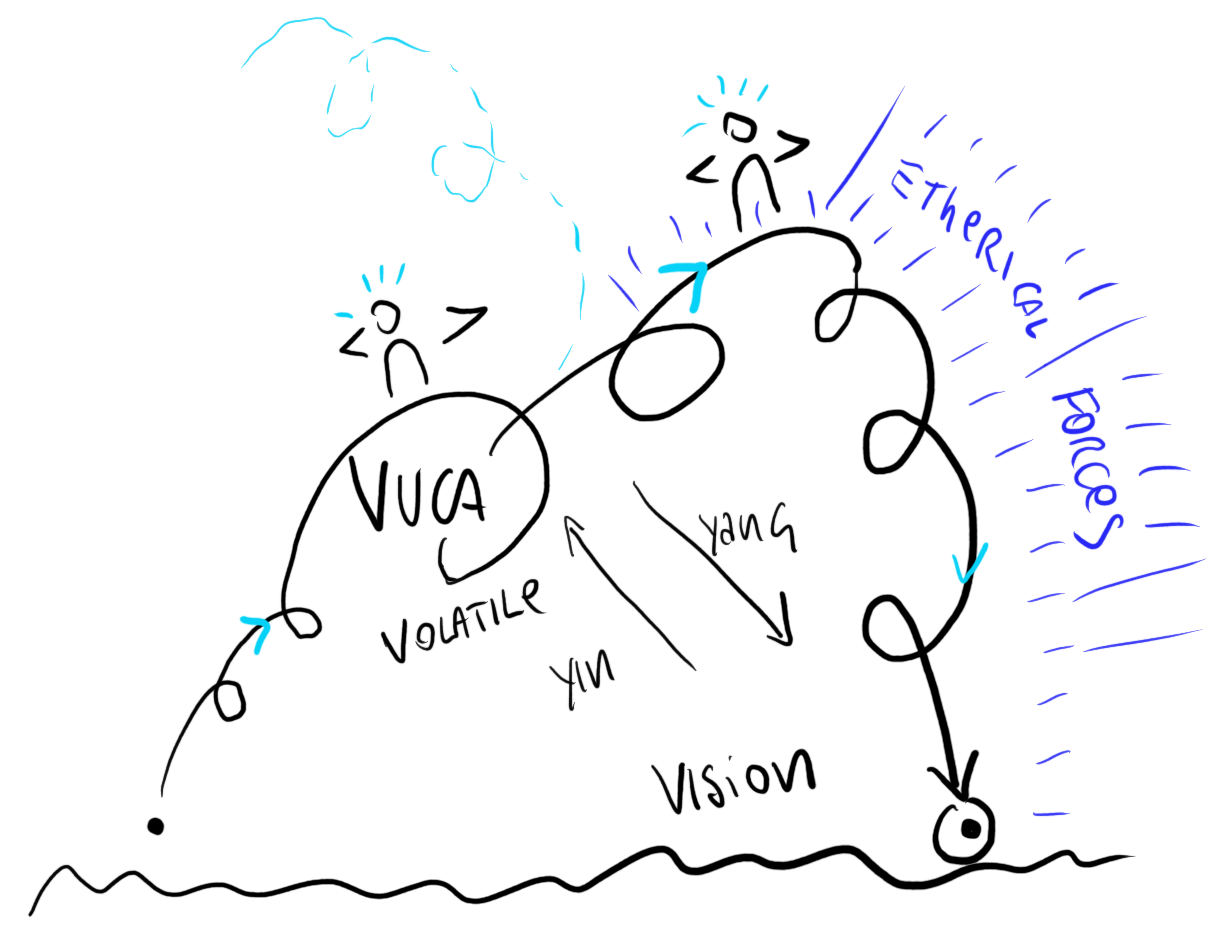 ETHERICAL
FORCES
VUCA
VOLATILE
yang
yin
VISION